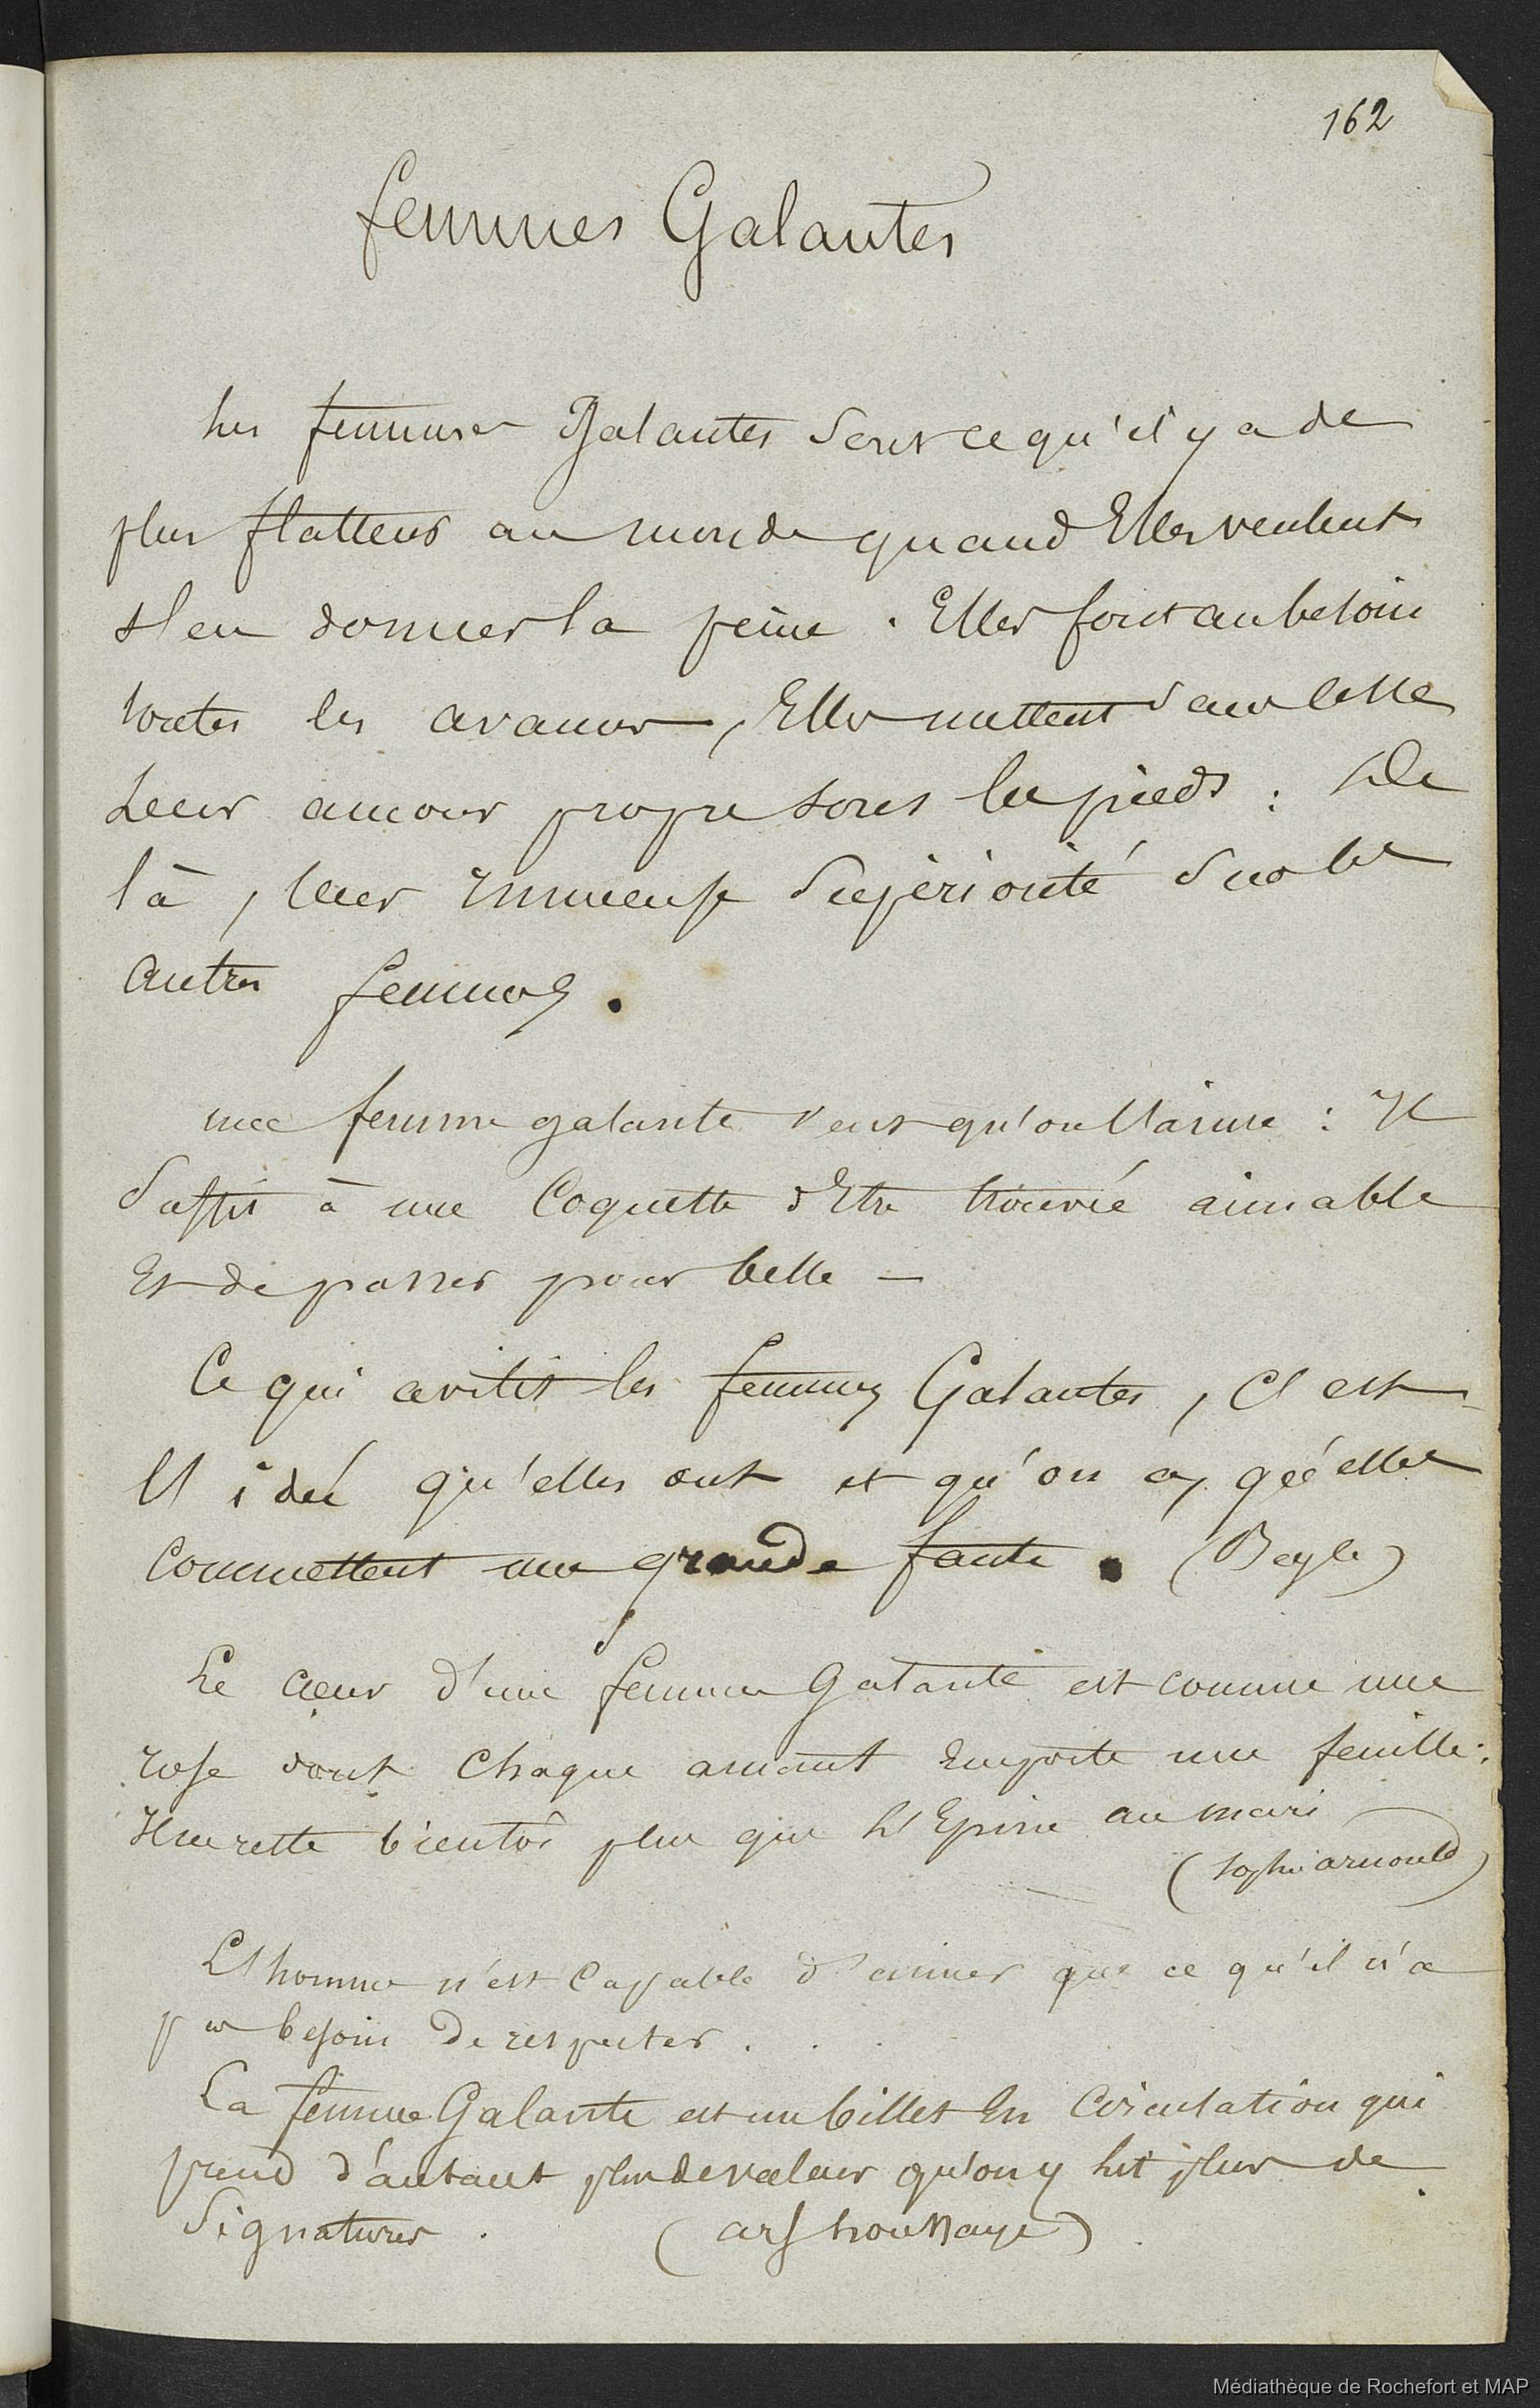 162
femmes Galantes
les femmes Galantes sont ce qu'il y a de
plus flatteur au monde quand Elles veulent
s'en donner la peine. Elles font au besoin
toutes les avances, Elles mettent sans cesse
Leur amour propre sous les pieds : De
là, leur immense supériorité sur les
autres femmes.
une femme galante veut qu'on l'aime : Il
suffit à une Coquette d'Etre trouvée aimable
Et de passer pour belle —
Ce qui avilit les femmes Galantes, c'est
l'idée qu'elles ont et qu'on a, qu'elles
commettent une grande faute. (Beyle)
Le cœur d'une femme Galante est comme une
rose dont chaque amant Emporte une feuille :
Il ne reste bientôt plus que l'Epine au mari
(Sophie arnould)
L'homme n'est Capable d'aimer que ce qu'il n'a
pas besoin de respecter . . .
La femme Galante est un billet En Circulation qui
prend d'autant plus de valeur qu'on y lit plus de
Signatures. (ars houssaye)
Médiathèque de Rochefort et MAP